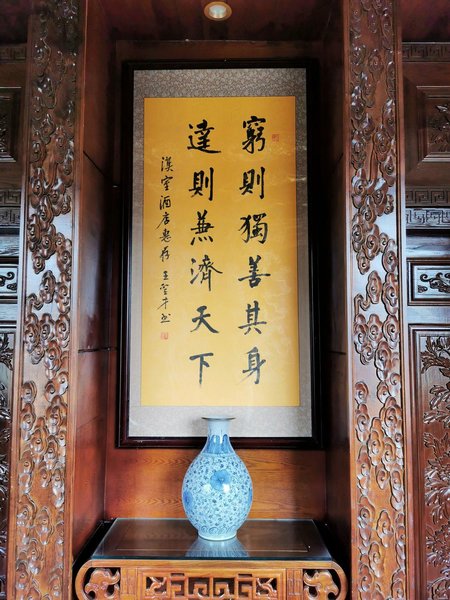 窮則獨善其身
達則兼濟天下
漢室酒店惠存 王雲才書